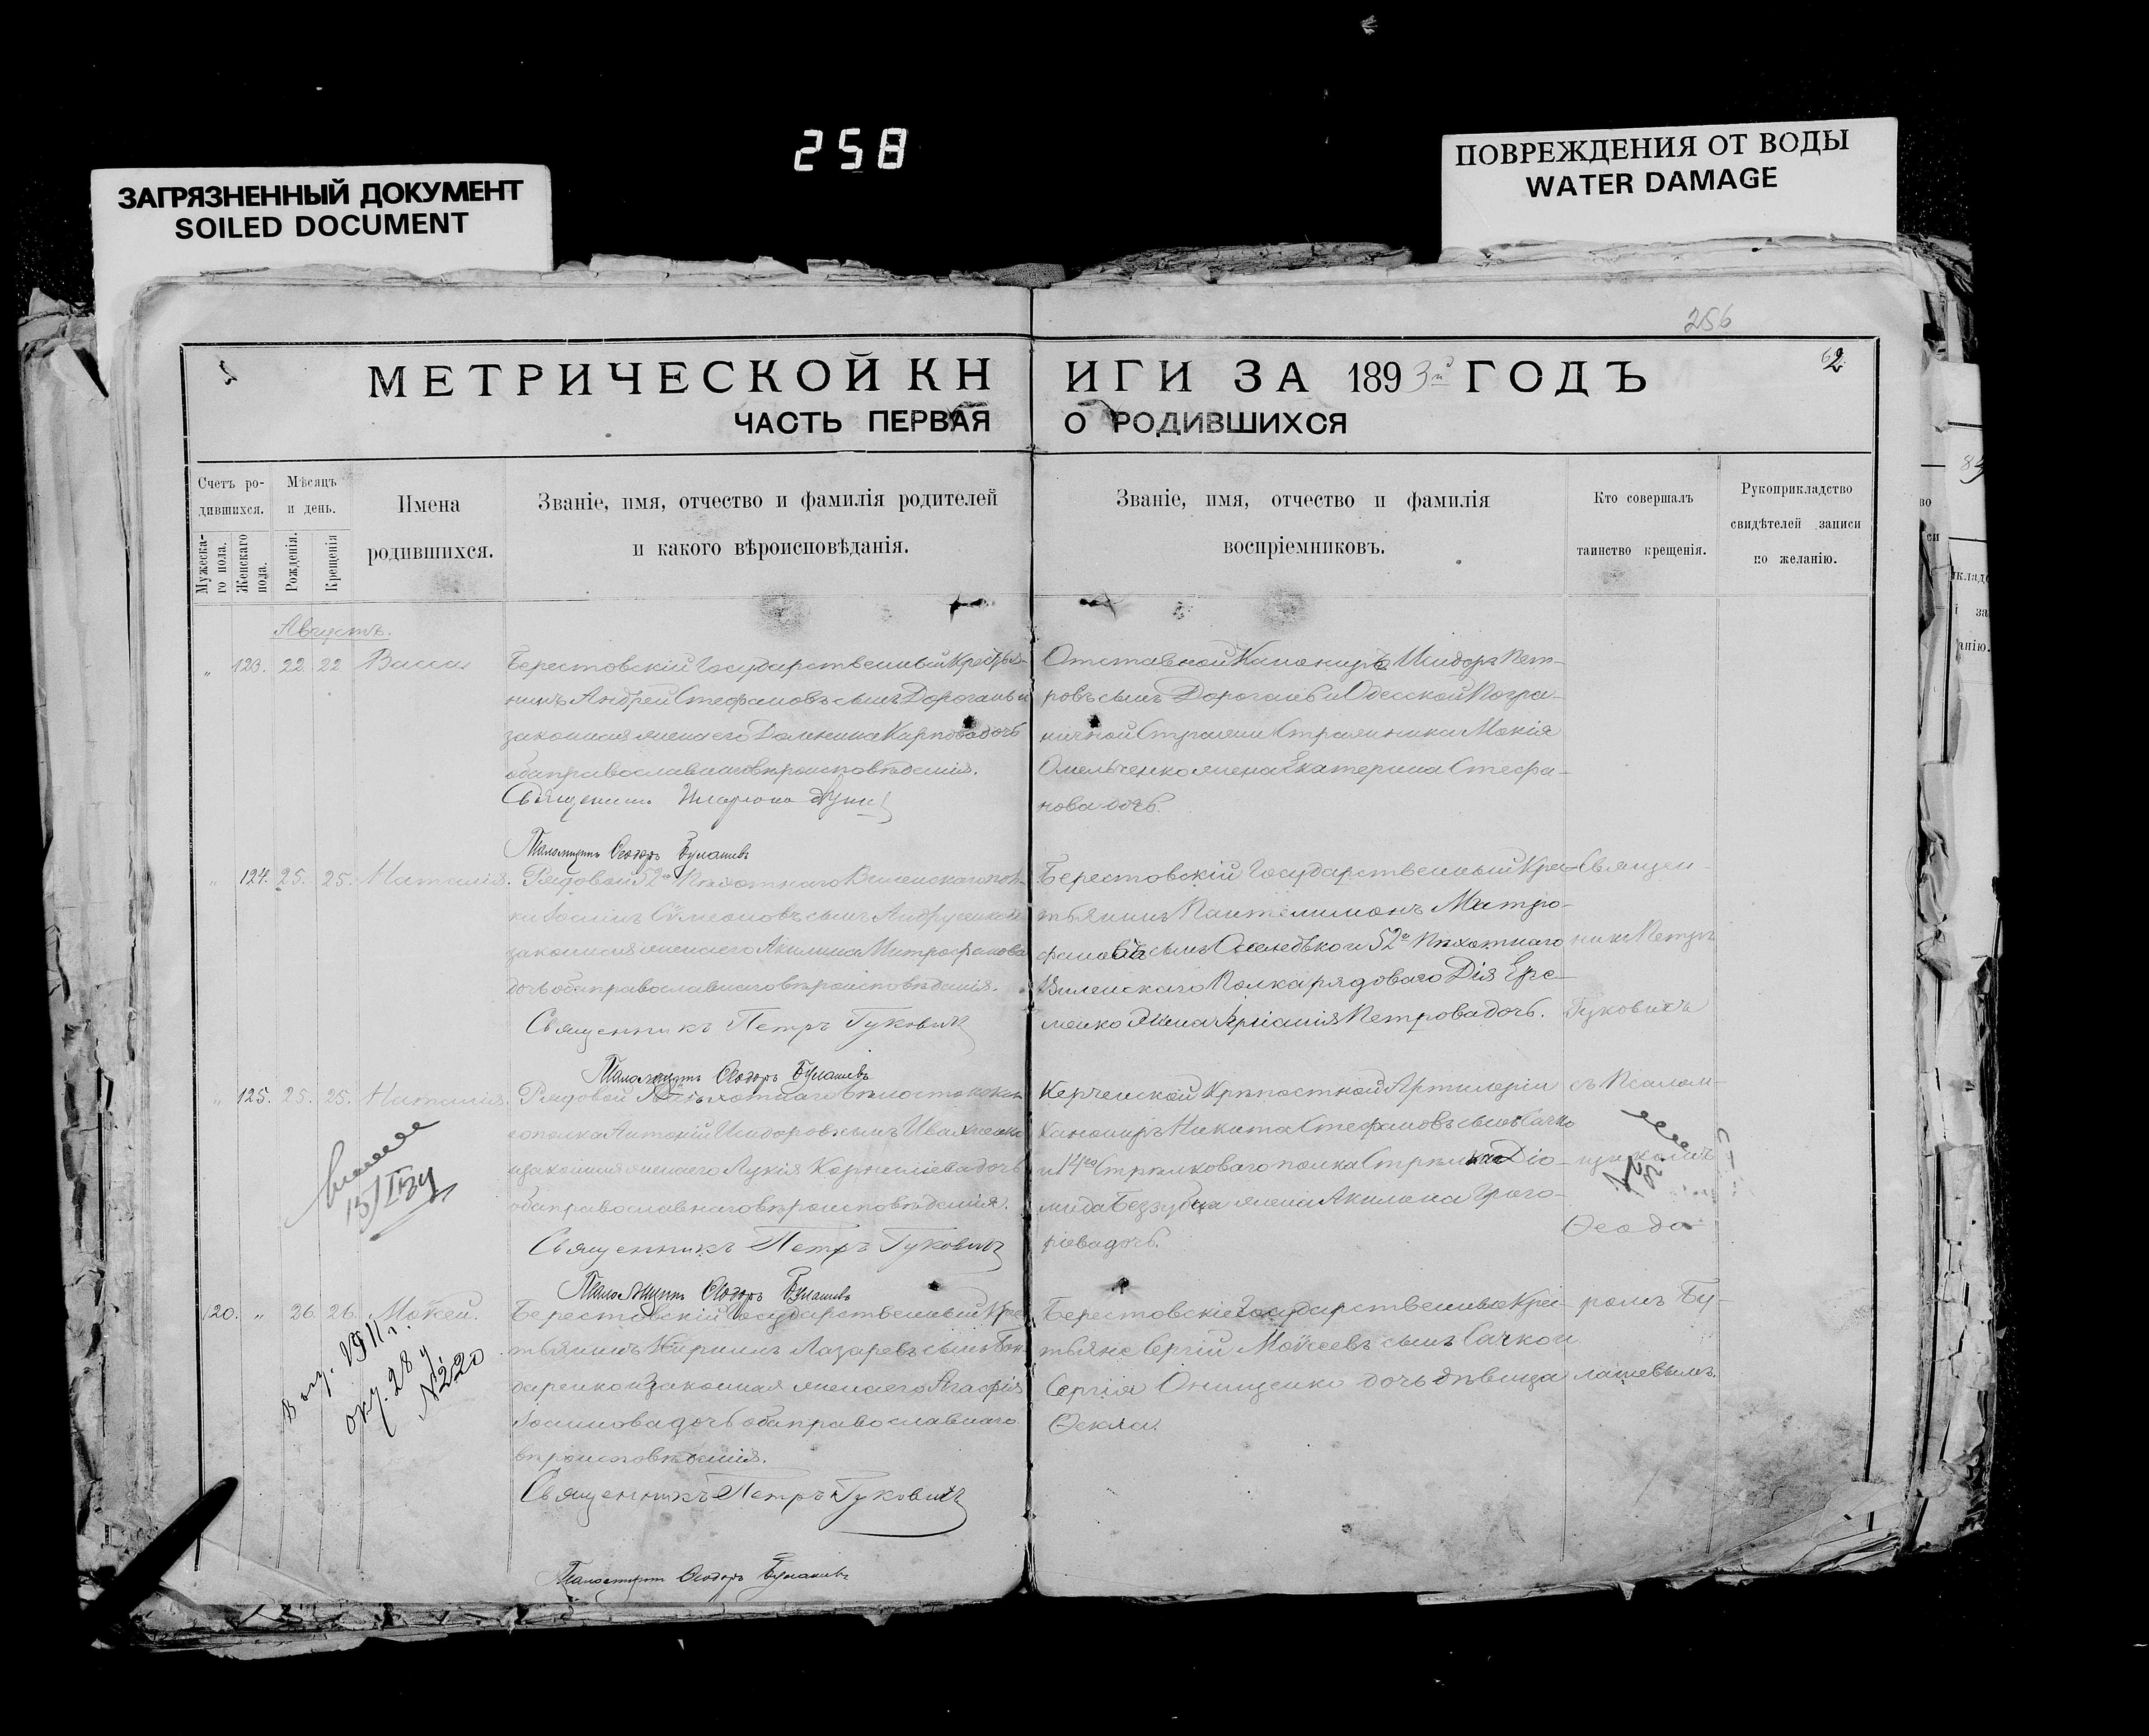 258
ЗАГРЯЗНЕННЫЙ ДОКУМЕНТ
SOILED DOCUMENT
ПОВРЕЖДЕНИЯ ОТ ВОДЫ
WATER DAMAGE
256
62.
МЕТРИЧЕСКОЙ КНИГИ ЗА 1893й ГОДЪ
ЧАСТЬ ПЕРВАЯ О РОДИВШИХСЯ
Счетъ ро-
дившихся.
Мужеска-
го пола.
Женскаго
пола.
Мѣсяцъ
и день.
Рожденія.
Крещенія
Имена
родившихся.
Званіе, имя, отчество и фамилія родителей
и какого вѣроисповѣданія.
Званіе, имя, отчество и фамилія
воспріемниковъ.
Кто совершалъ
таинство крещенія.
Рукоприкладство
свидѣтелей записи
по желанію.
Августъ.
" 123. 22. 22 Васса
Берестовскій Государственный Крестья-
нинъ Андрей Стефановъ сынъ Дороганъ и
законная жена его Домникія Карпова дочь
оба православнаго вѣроисповѣданія.
Священникъ Иларіонъ
Псаломщикъ Ѳеодоръ Булашевъ
Отставной Канониръ Исидоръ Пет-
ровъ сынъ Дороганъ и Одесской Погра-
ничной Стражи Стражника Мокія
Омельченко жена Екатерина Стефа-
нова дочь.
" 124. 25. 25. Наталія.
Рядовой 52го Пѣхотнаго Виленскаго пол-
ка Іосифъ Сѵмеоновъ сынъ Андрусенко и
законная жена его Акилина Митрофанова
дочь оба православнаго вѣроисповѣданія.
Священникъ Петръ Гуковичъ
Псаломщикъ Ѳеодоръ Булашевъ
Берестовскій Государственный Крес-
тьянинъ Пантелимонъ Митро-
фановъ сынъ Оселедько и 52го Пѣхотнаго
Виленскаго Полка рядоваго Дія Ере-
менко жена Петрова дочь.
Священ-
никъ Петръ
Гуковичъ
" 125. 25. 25. Наталія.
Рядовой Пѣхотнаго Бѣлостокска-
го полка Антоній Исидоровъ сынъ Ивахненко
и законная жена его Лукія Корниліева дочь
оба православнаго вѣроисповѣданія.
Священникъ Петръ Гуковичъ
Псаломщикъ Ѳеодоръ Булашевъ
Керченской Крѣпостной Артилеріи
Канониръ Никита Стефановъ сынъ Сачко
и 14го Стрѣлковаго полка Стрѣлка Діо-
мида Беззубца жена Акилина Григо-
ріева дочь.
съ Псалом-
щикомъ
Ѳеодо-
15/II 34
120. " 26. 26. Моѵсей.
Выд. 1911 г.
N220
Берестовскій Государственный Крес-
тьянинъ Кириллъ Лазаревъ сынъ Бон-
даренко и законная жена его Агафія
Іосифова дочь оба православнаго
вѣроисповѣданія.
Священникъ Петръ Гуковичъ
Псаломщикъ Ѳеодоръ Булашевъ
Берестовскіе Государственные Крес-
тьяне Сергій Моѵсеевъ сынъ Сачко и
Сергія Онищенко дочь дѣвица
Ѳекла.
ромъ Бу-
лашевымъ.